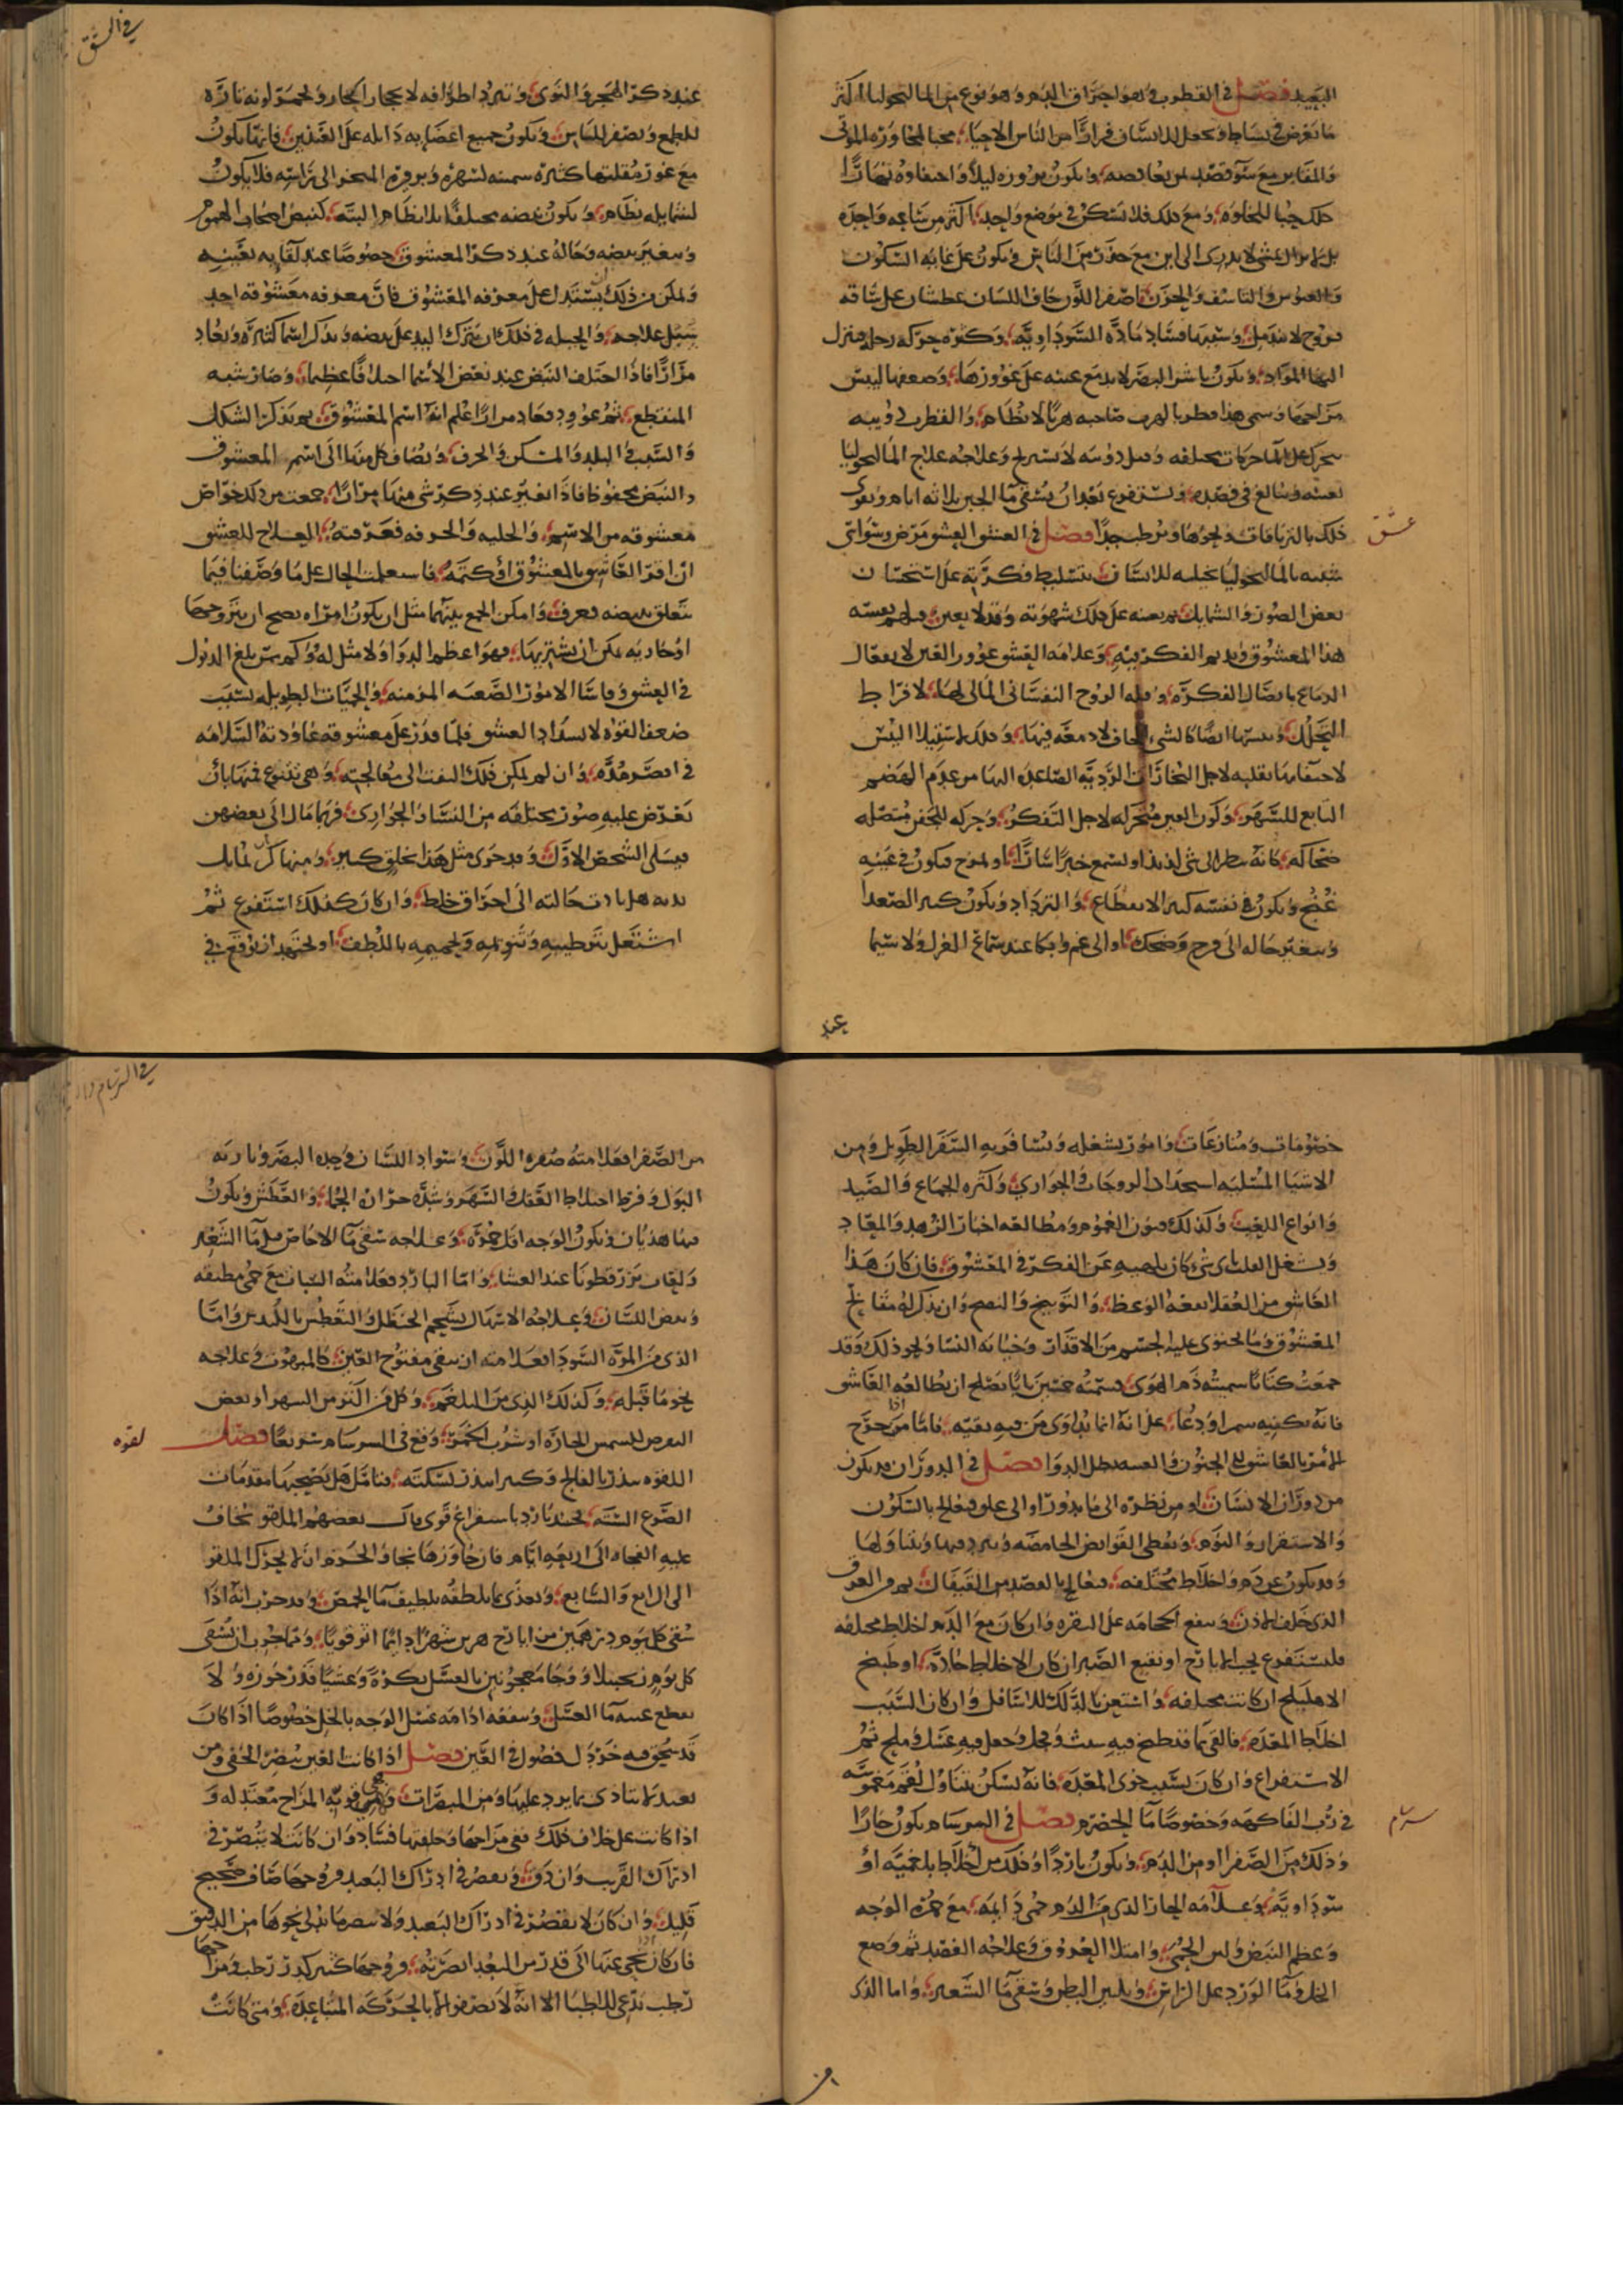 البعيد فصل في القطرب وهو احتراق الدم وهو نوع من المالنخوليا اكثر
ما يعرض في شباط ويجعل الانسان فرارا من الناس الاحيا محبا لمجاورة الموتى
والمقابر مع سوء قصد لمن يغافصه ويكون بروزه ليلا واختفاوه نهارا
ذلك حبا للخلوة ومع ذلك فلا يسكن في موضع واحد اكثر من ساعه واحده
بل لا يزال يمشي لا يدرى الى اين مع حذر من الناس ويكون على غاية السكون
والعبوس والتاسف والحزن اصفر اللون جاف اللسان عطشان على ساقه
قروح لا تندمل وسببها فساد مادة السوداويه وكثرة حركة رجله فتنزل
اليها المواد ويكون يابس البصر لا يدمع عينه على غؤورها وضعفها ليبس
مزاجها وسمي هذا قطربا لهرب صاحبه هربا لا نظام والقطرب دويبه
تتحرك على الما حركات مختلفه وقيل دويبه لا تستريح وعلاجه علاج المالنخوليا
بعينه ويبالغ في فصده ويستفرغ بعد ان يسقى ما الجبن ثلاثه ايام ويقوى
ذلك بالترياقات ونحوها ويرطب جدا فصل في العشق العشق مرض وسواسي
عشق
شبيه بالمالنخوليا يجلبه للانسان تسليط فكرته على استحسان
بعض الصور والشمايل ثم يعينه على ذلك شهوته وقد لا يعين
هذا المعشوق ويديم الفكر فيه وعلامة العشق غوور العين لانفعال
الدماغ باتصال الفكره وميله الروح النفساني المالي لها لافراط
التحلل ويبسها ايضا كالشيء الجاف لا دمعة فيها وذلك لاستيلا اليبس
لاجل البخارات الرديه الصاعده اليها من عدم الهضم
التابع للسهر وكون العين متحركه لاجل التفكر وحركه للجفن متصله
ضحاكه كانه ينظر الى شي لذيذ او يسمع خبرا سارا او لمزح فيكون في عينيه
غنج ويكون في نفسه كثير الانقطاع والترداد ويكون كثير الصعدا
ويتغير حاله الى فرح وضحك او الى غم وبكا عند سماع الغزل ولا سيما
عند
في العشق
عند ذكر الهجر والنوى
للطبع وتصفر للناس ويكون جميع اعضايه ذابله على العينين فانها يكون
مع غور مقلتها كثيره سمينه لسهره
لشمايله نظام ويكون نبضه مختلفا بلا نظام البته كنبض اصحاب الهموم
ويتغير نبضه وحاله عند ذكر المعشوق خصوصا عند لقايه بعينه
ويمكن من ذلك ان يستدل على معرفه المعشوق فان معرفه معشوقه احد
سبل علاجه والحيله في ذلك ان يترك اليد على نبضه ويذكر اسما كثيره ويعاد
مرارا فاذا اختلف النبض عند بعض الاسما اختلافا عظيما وصار شبه
المنقطع ثم عوود فعاد مرارا علم انه اسم المعشوق ثم يذكر الشكل
والنسب والبلد والمسكن والحرف ويضاف كل منها الى اسم المعشوق
والنبض محفوظا فاذا تغير عند ذكر شي منها مرارا جمعت من ذلك خواص
معشوقه من الاسم والحليه والحرفه فعرفته العلاج للعشق
ان اقر العاشق بالمعشوق او كتمه فاستعملت الحال على ما وصفنا فيما
يتعلق بنبضه فعرف وامكن الجمع بينهما مثل ان يكون امراه يصح ان يتزوجها
او جاريه يمكن ان يشتريها فهو اعظم الدوا ولا مثل له وكم من بلغ الذبول
في العشق وقاسا الامور الصعبه المزمنه والحميات الطويله لسبب
ضعف القوه لاشتداد العشق فلما قدر على معشوقه عاودته السلامه
في اقصر مده وان لم يمكن ذلك التفت الى معالجته وهي تتنوع فمنها بان
تعرض عليه صور مختلفه من النسا والجواري فربما مال الى بعضهن
فيسلى الشخص الاول وقد جرى مثل هذا لخلق كثير
حالته الى احتراق خلط وان كان كذلك استفرغ ثم
اشتغل بترطيبه وتنويمه وتحميمه باللطف او تجتهد ان توقع في
خصومات ومنازعات وامور تشغله ويسافر به السفر الطويل ومن
الاشيا المسليه استجداد الزوجات والجواري وكثره الجماع والصيد
وانواع اللعب وكذلك ومطالعه اخبار الزهد والمعاد
ويشغل القلب باي شي كان يلهيه عن الفكر في المعشوق فان كان هذا
العاشق من العقلا نفعه الوعظ والتوبيخ والنصح وان يذكر له مقابح
المعشوق وما يحتوى عليه الجسم من الاقذار وخيانه النسا ونحو ذلك وقد
جمعت كتابا سميته ذم الهوى قسمته خمسين بابا يصلح ان يطالعه العاشق
فانه يكفيه على انه انما يداوى من فيه بقيه فاما اذا من خرج
الامر بالعاشق الى الجنون بطل الدوا فصل في الدوران قد يكون
من دوران الانسان او من نظره الى ما يدور او الى علو فيعالج بالسكون
والاستقرار والنوم ويعطى القوابض الحامضه
وقد يكون عن دم واخلاط مختلفه فيعالج بالفصد من القيفال ثم من العرق
الذي خلف الاذن وينفع الحجامه على النقره وان كان مع الدم اخلاط مختلفه
فليستفرغ بحب الايارج او نقيع الصبر ان كان الاخلاط حاده او طبيخ
الاهليلج ان كانت مختلفه واستعن بالدلك للاسافل وان كان السبب
اخلاط المعده فالقي بما قد طبخ فيه شبث وفجل وجعل فيه عسل وملح ثم
الاستفراغ وان كان بسبب خوى المعده فانه يسكن بتناول لقم مغموسه
في رب الفاكهه وخصوصا ما الحصرم فصل في السرسام يكون حارا
سرسام
وذلك من الصفرا او من الدم ويكون باردا وذلك من اخلاط بلغميه او
سوداويه وعلامه الحار الذي من الدم حمى دايمه مع حمره الوجه
وعظم النبض ولين الحمى وامتلا العروق وعلاجه الفصد ثم وضع
الخل وما الورد على الراس وتليين البطن وسقي ما الشعير واما الذي
من
في السرسام
من الصفرا فعلامته صفره اللون وسواد اللسان وحده البصر وناريه
البول وفرط اختلاط العقل والسهر وشده حران الحما والعطش ويكون
فيها هذيان ويكون الوجه اقل حمره وعلاجه سقي ما الاجاص ثم ما الشعير
ولعاب بزر قطونا عند العشا واما البارد فعلامته السبات مع حمى مطبقه
وبياض اللسان وعلاجه الاسهال بشحم الحنظل والتعطيس بالكندس واما
الذي من المره السودا فعلامته ان يبقى مفتوح العين كالمبهوت وعلاجه
نحو ما قبله وكذلك الذي من البلغم وكل من اكثر من السهر او بعض
التعرض للشمس الحاره او شرب الخمر وقع في السرسام سريعا فصل
لقوه
اللقوه تنذر بالفالج وكثيرا تنذر بسكته فتامل هل تصحبها مقدمات
الصرع السكته فحينئذ بادر باستفراغ قوى قال بعضهم الملقو يخاف
عليه الفجاه الى اربعه ايام فان جاوزها نجا والحزم ان لا يحرك الملقو
الى الرابع والسابع ويغذى بما يلطفه تلطيف ما الحمص وقد جرب انه اذا
سقي كل يوم درهمين من ايارج هرمس شهرا دايما اثر قويا ومما جرب ان يسقى
كل يوم زنجبيلا ووجا معجونين بالعسل بكرة وعشيا قدر جوزه ولا
يقطع عنه ما العسل وينفعه ادامه غسل الوجه بالخل خصوصا اذا كان
قد سحق فيه خردل فصول في العين فصل اذا كانت العين تبصر الخفي ومن
بعد لا تتاذى بما يرد عليها ومن المبصرات فهي قويه المزاج معتدله و
اذا كانت على خلاف ذلك ففي مزاجها وخلقتها فساد وان كانت لا تبصر في
ادراك القريب وان دق ويقصر في ادراك البعيد فروحها صاف صحيح
قليل وان كان لا يقصر في ادراك البعيد ولا نحوها من الدقيق
فان كان نحي عنها الى قدر من البعد ابصرته فروحها كثير كدر رطب ومزاجها
رطب يدعى للاطبا الا انه لا يصفو الا بالحركه المتباعده ومتى كانت